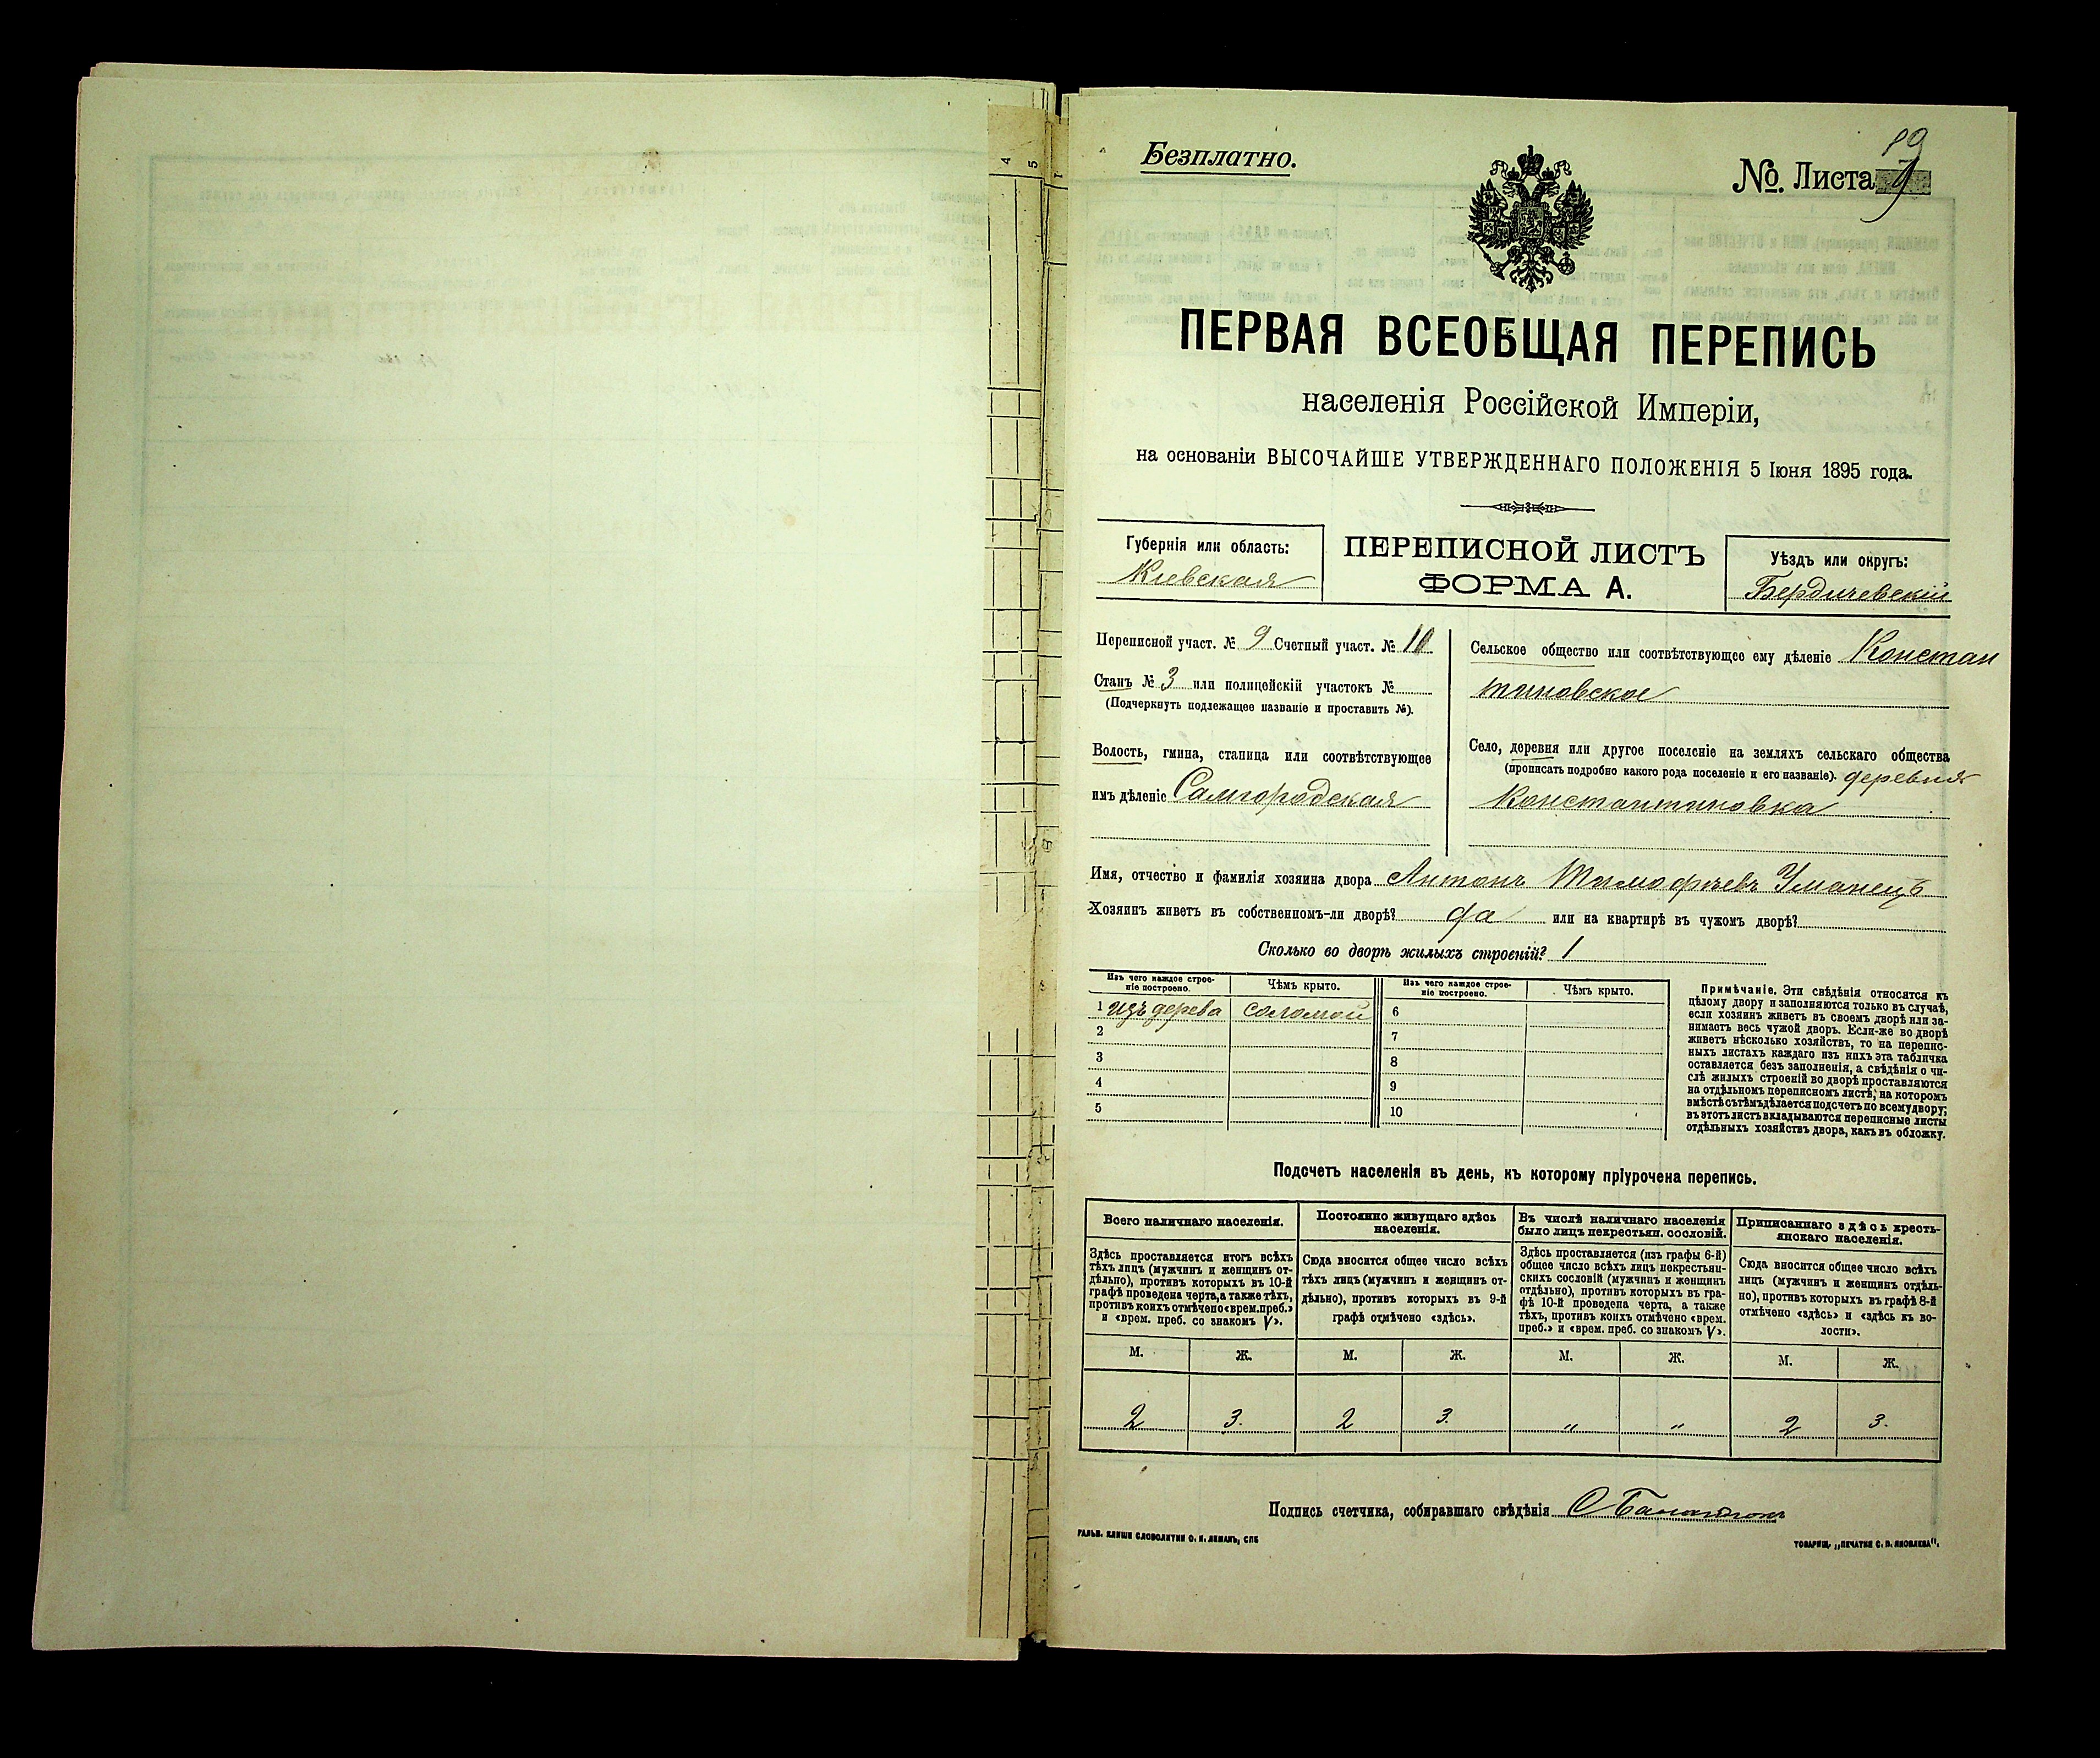 Безплатно.
19
№. Листа 9
ПЕРВАЯ ВСЕОБЩАЯ ПЕРЕПИСЬ
населенія Россійской Имперіи,
на основаніи ВЫСОЧАЙШЕ УТВЕРЖДЕННАГО ПОЛОЖЕНІЯ 5 Іюня 1895 года.
Губернія или область:
Кіевская
ПЕРЕПИСНОЙ ЛИСТЪ
ФОРМА А.
Уѣздъ или округъ:
Бердичевскій
Переписной участ. № 9 Счетный участ. № 10
Станъ № 3 или полицейскій участокъ №
(Подчеркнуть подлежащее названіе и проставить №).
Волость, гмина, станица или соотвѣтствующее
имъ дѣленіе Самгородская
Сельское общество или соотвѣтствующее ему дѣленіе Констан
тиновское
Село, деревня или другое поселеніе на земляхъ сельскаго общества
(прописать подробно какого рода поселеніе и его названіе). деревня
Константиновка
Имя, отчество и фамилія хозяина двора Антонъ Тимофѣевъ Уманецъ
Хозяинъ живетъ въ собственномъ-ли дворѣ? да или на квартирѣ въ чужомъ дворѣ?
Сколько во дворѣ жилыхъ строеній? 1
Изъ чего каждое строе-
ніе построено.
Чѣмъ крыто.
Изъ чего каждое строе-
ніе построено.
Чѣмъ крыто.
1 изъ дерева соломой 6
2 7
3 8
4 9
5 10
Примѣчаніе. Эти свѣдѣнія относятся къ
цѣлому двору и заполняются только въ случаѣ,
если хозяинъ живетъ въ своемъ дворѣ или за-
нимаетъ весь чужой дворъ. Если-же во дворѣ
живетъ нѣсколько хозяйствъ, то на перепис-
ныхъ листахъ каждаго изъ нихъ эта табличка
оставляется безъ заполненія, а свѣдѣнія о чи-
слѣ жилыхъ строеній во дворѣ проставляются
на отдѣльномъ переписномъ листѣ, на которомъ
вмѣстѣ съ тѣмъ дѣлается подсчетъ по всему двору;
въ этотъ листъ вкладываются переписные листы
отдѣльныхъ хозяйствъ двора, какъ въ обложку.
Подсчетъ населенія въ день, къ которому пріурочена перепись.
Всего наличнаго населенія.
Здѣсь проставляется итогъ всѣхъ
тѣхъ лицъ (мужчинъ и женщинъ от-
дѣльно), противъ которыхъ въ 10-й
графѣ проведена черта, а также тѣхъ,
противъ коихъ отмѣчено «врем. преб.»
и «врем. преб. со знакомъ V».
Постоянно живущаго здѣсь
населенія.
Сюда вносится общее число всѣхъ
тѣхъ лицъ (мужчинъ и женщинъ от-
дѣльно), противъ которыхъ въ 9-й
графѣ отмѣчено «здѣсь».
Въ числѣ наличнаго населенія
было лицъ некрестьян. сословій.
Здѣсь проставляется (изъ графы 6-й)
общее число всѣхъ лицъ некрестьян-
скихъ сословій (мужчинъ и женщинъ
отдѣльно), противъ которыхъ въ гра-
фѣ 10-й проведена черта, а также
тѣхъ, противъ коихъ отмѣчено «врем.
преб.» и «врем. преб. со знакомъ V».
Приписаннаго здѣсь кресть-
янскаго населенія.
Сюда вносится общее число всѣхъ
лицъ (мужчинъ и женщинъ отдѣль-
но), противъ которыхъ въ графѣ 8-й
отмѣчено «здѣсь» и «здѣсь къ во-
лости».
М. Ж. М. Ж. М. Ж. М. Ж.
2 3. 2 3. „ „ 2 3.
Подпись счетчика, собиравшаго свѣдѣнія
ГАЛЬВ. КЛИШЕ СЛОВОЛИТНИ О. И. ЛЕМАНЪ, СПБ
ТОВАРИЩ. „ПЕЧАТНЯ С. П. ЯКОВЛЕВА“.